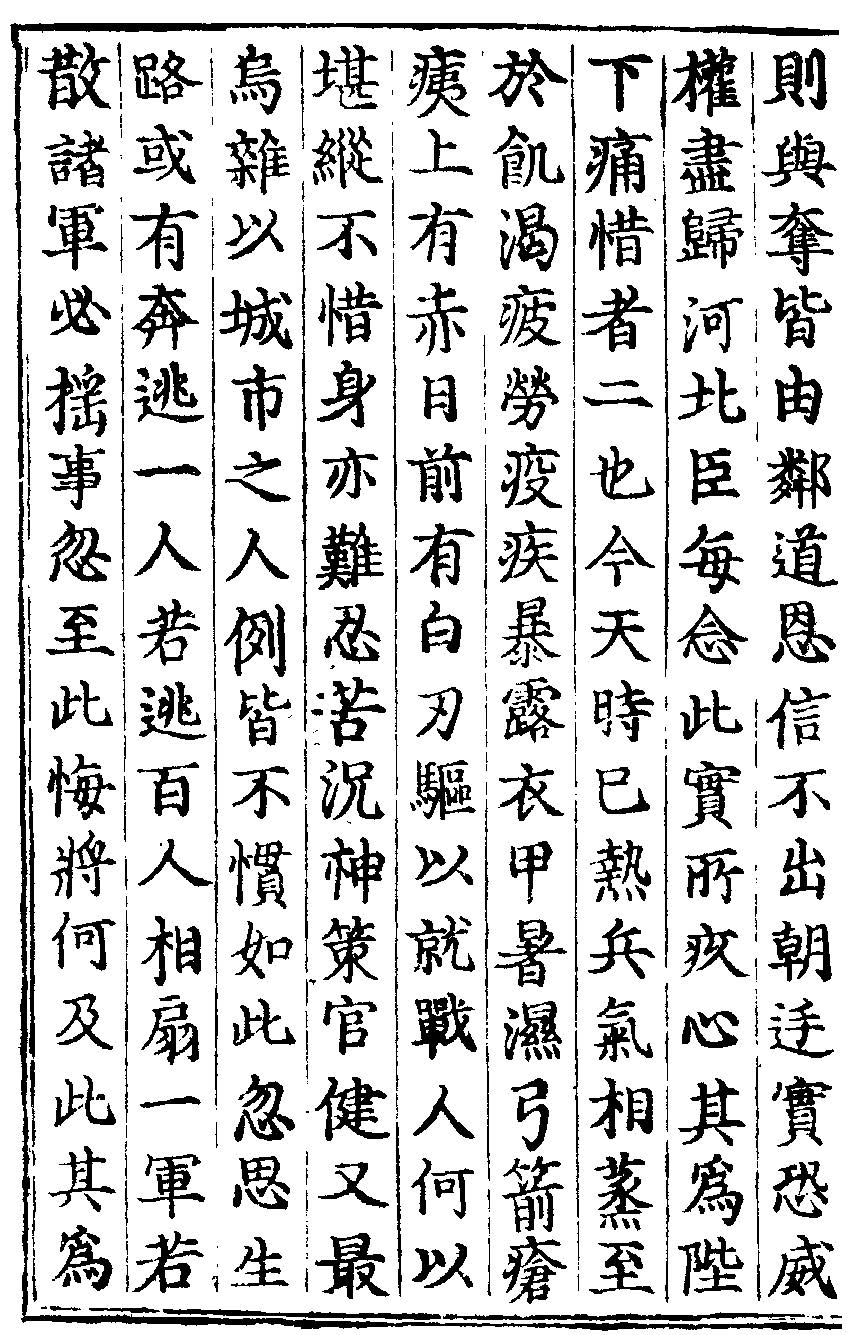 則與奪皆由鄰道恩信不出朝廷實恐威
權盡歸河北臣每念此實所疚心其爲陛
下痛惜者二也今天時已熱兵氣相蒸至
於飢渴疲勞疫疾暴露衣甲暑濕弓箭瘡
痍上有赤日前有白刃驅以就戰人何以
堪縱不惜身亦難忍苦況神策官健又最
烏雜以城市之人例皆不慣如此忽思生
路或有奔逃一人若逃百人相扇一軍若
散諸軍必揺事忽至此悔將何及此其爲